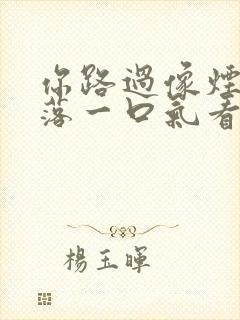 你路過像煙
落一口氣看
楊玉暉